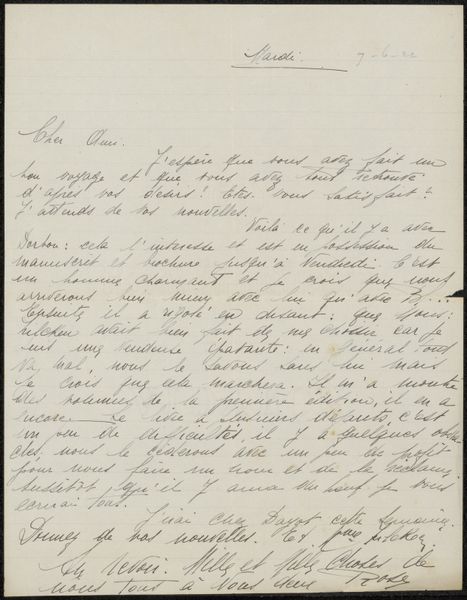 Mardi. 7-6-22
Cher Ami.
J'espère que vous avez fait un
bon voyage et que vous avez tout retrouvé
d'après vos désirs! Etes-vous satisfait?
J'attends de vos nouvelles.
Voilà ce qu'il y a avec
Dorbon: cela l'interesse et est en possession du
manuscrit et brochure jusqu'à Vendredi. C'est
un homme charmant et je crois que nous
arriverons bien mieux avec lui qu'avec
Ensuite il a rigolé en disant: que Vous:
avait bien fait de me choisir car je
suis une vendeuse épatante: en général tout
va mal, nous le savons sans un mais
je crois que cela marchera. Il m'a montré
des volumes de la première édition, il en a
encore. Le livre a plusieurs c'est
un peu de difficultés, il y a quelques
nous le cèderons avec un peu de profit
pour nous faire un nom et de la réclame
aussitôt qu'il y aura du neuf je vous
écrirai tout.
J'irai chez Dayot cette semaine.
Donnez de vos nouvelles. Et
Au revoir. Mille et Mille Choses de
nous tout à vous deux Rose